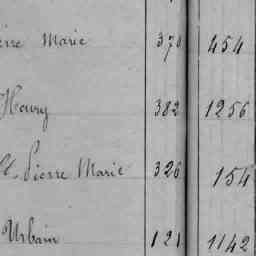 Marie 370 454
Henry 382 1256
Pierre Marie 326 154
Urbain 121 1142